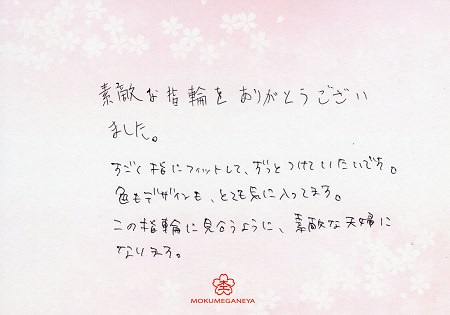 素敵な指輪をありがとうござい
ました。
すごく指にフィットして、ずっとつけていたいです。
色もデザインも、とても気に入ってます。
この指輪に見合うように、素敵な夫婦に
なります。
MOKUMEGANEYA